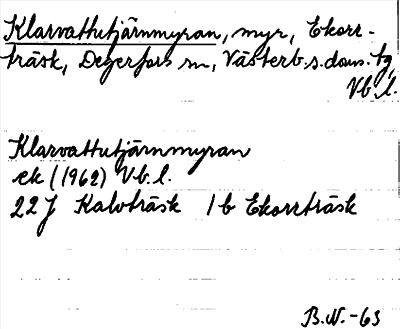 Klarvattutjärnmyran, myr, Ekorr-
träsk, Degerfors sn, Västerb.s.doms. tg
Vb.l.
Klarvattutjärnmyran
ek (1962) Vb.l.
22 J Kalvträsk 1 b Ekorrträsk
B.N.-63